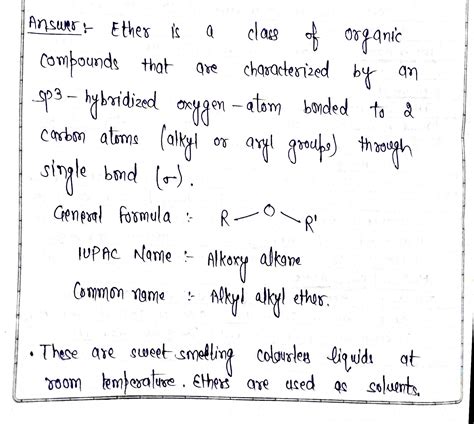 Answer :- Ether is a class of organic
compounds that are characterized by an
sp3 - hybridized oxygen - atom bonded to 2
carbon atoms (alkyl or aryl groups) through
single bond (σ).
General formula :- R - O - R'
IUPAC Name :- Alkoxy alkane
Common name :- Alkyl alkyl ether.
• These are sweet smelling colourless liquids at
room temperature. Ethers are used as solvents.